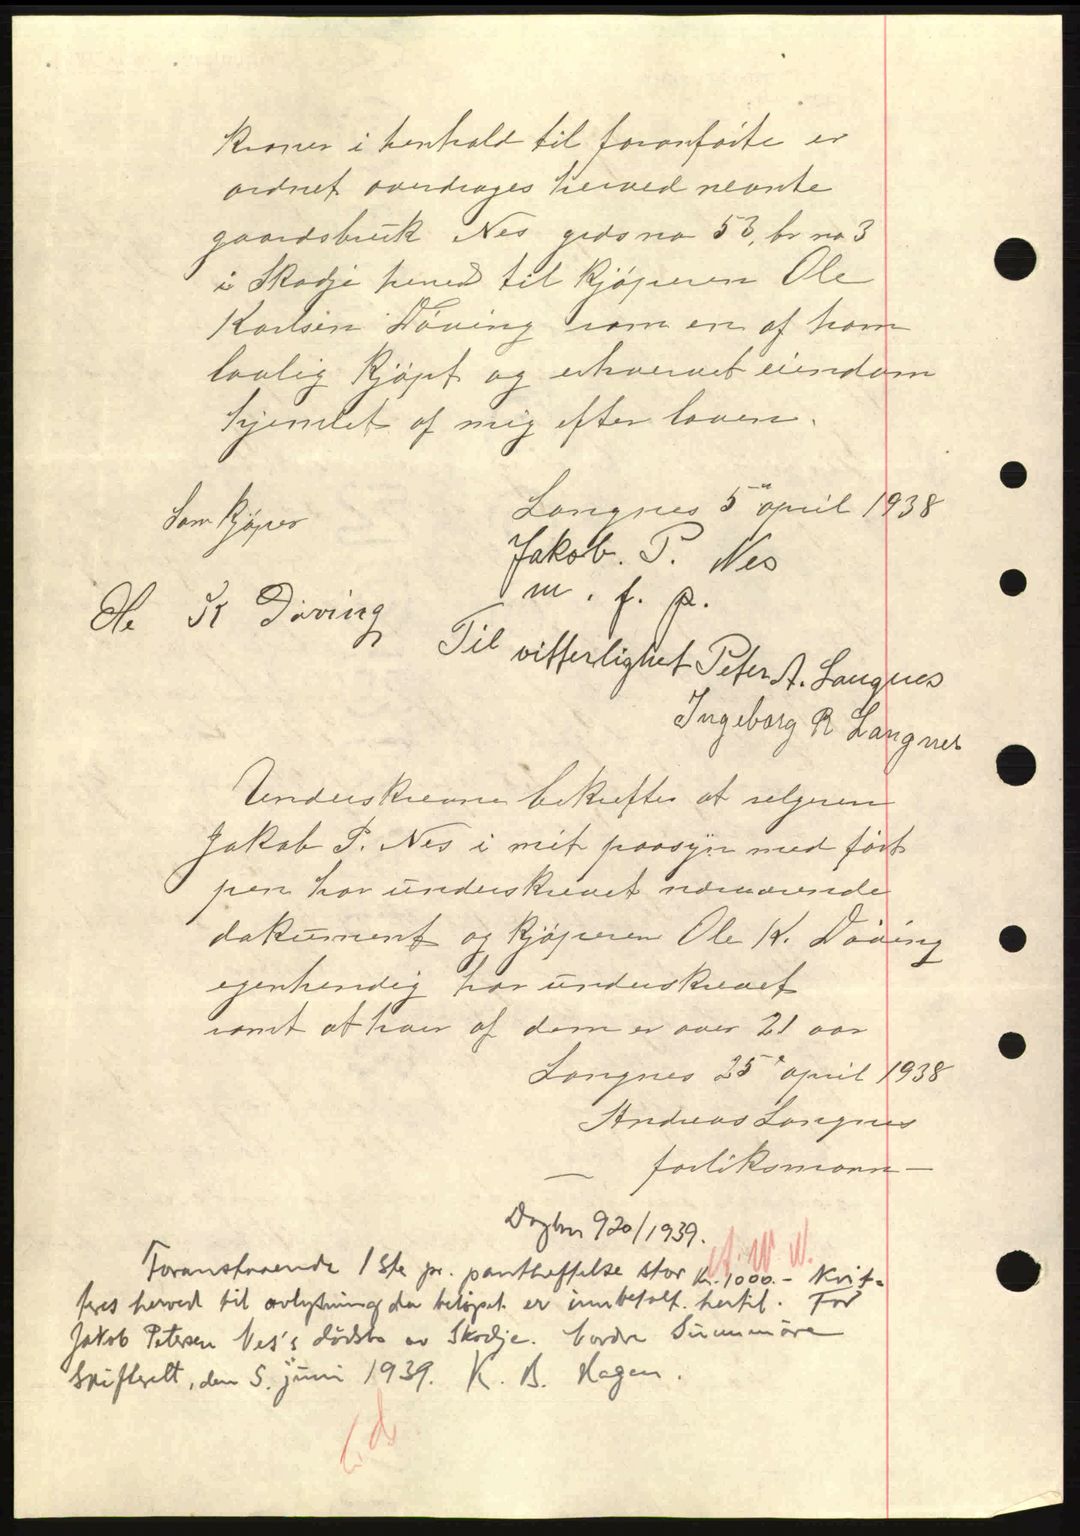 kroner i henhold til foranførte er
ordnet overdrages herved nevnte
gaardsbruk Nes grds no 53, br no 3
i Skodje herred til kjøperen Ole
Karlsen Døving som en af ham
lovlig kjøpt og erhvervet eiendom
hjemlet af mig efter loven.
Langnes 5 april 1938
Som kjøper
Jakob. P. Nes
m. f. p.
Ole K Døving
Til vitterlighet Peter A. Langnes
Ingeborg R Langnes
Underskrevne bekrefter at selgeren
Jakob P. Nes i mit paasyn med ført
pen har underskrevet nærværende
dokument og kjøperen Ole K. Døving
egenhendig har underskrevet
samt at hver af dem er over 21 aar
Langnes 25 april 1938
Andreas Langnes
— forliksmann —
Dagbm 920/1939.
Foranstaaende 1ste pr. pantheftelse stor kr. 1000.- kvit-
teres herved til avlysning da beløpet er innbetalt hertil. For
Jakob Petersen Nes's dødsbo av Skodje. Nordre Sunnmøre
skifterett, den 5. juni 1939. K. B. Hagen.